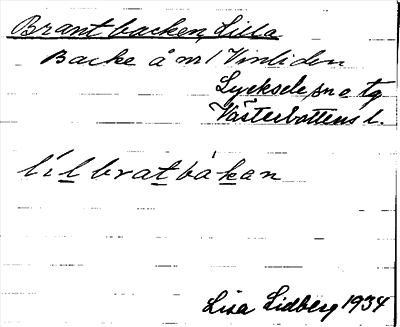 Brantbacken, Lilla
Backe å nr 1 Vinliden
Lycksele sn o tg
Västerbottens l.
lílbratbákan
Lisa Lidberg 1934